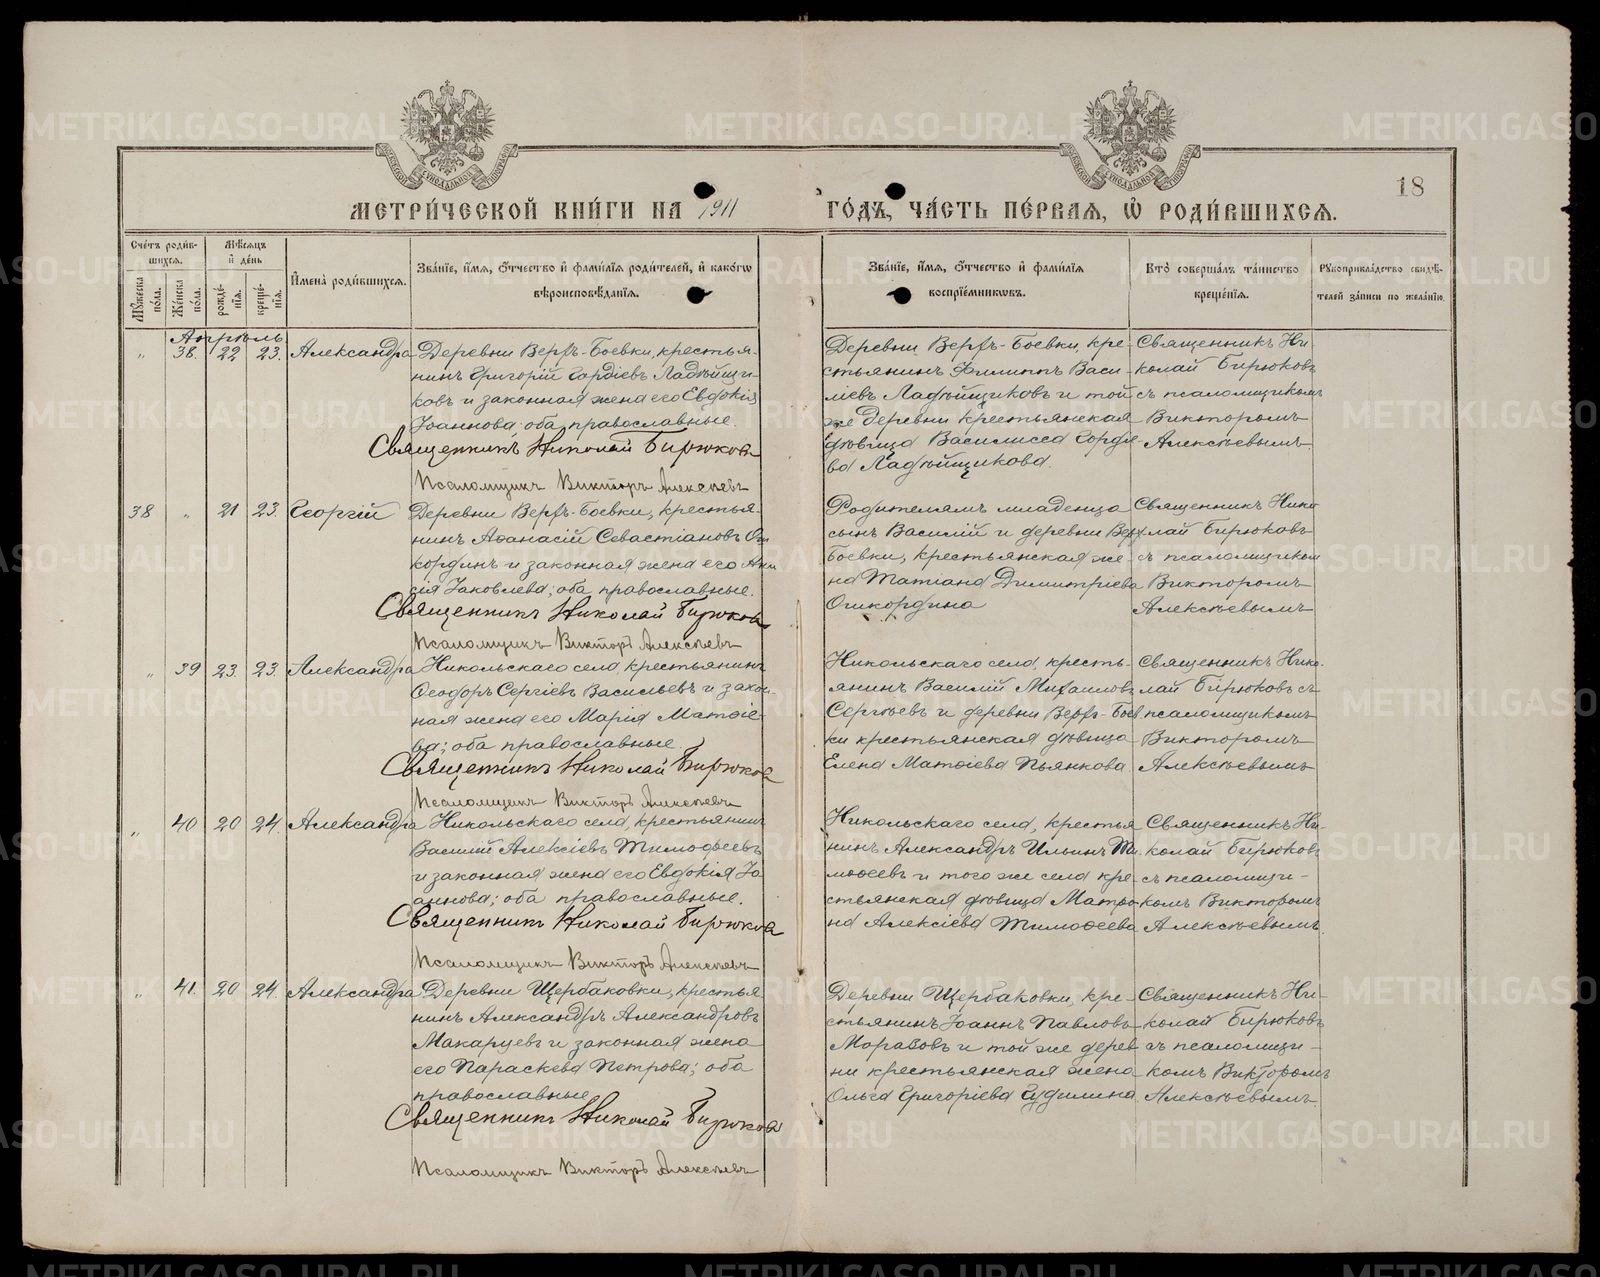 МЕТРИ́ЧЕСКОЙ КНИ́ГИ НА 1911
ГО́ДЪ, ЧА́СТЬ ПЕ́РВАЯ, Ѡ҆ РОДИ́ВШИХСЯ.
18
Сче́тъ роди́вшихся.
Му́жеска по́ла.
Же́нска по́ла.
Мѣ́сяцъ и҆ де́нь
рожде́нїя.
креще́нїя.
И҆мена̀ роди́вшихся.
Зва́нїе, и҆́мя, ѻ҆́тчество и҆ фами́лїя роди́телей, и҆ како́гѡ
вѣроисповѣ́данїя.
Зва́нїе, и҆́мя, ѻ҆́тчество и҆ фами́лїя
воспрїе́мникѡвъ.
Кто̀ соверша́лъ та́инство
креще́нїя.
Рꙋкоприкла́дство свидѣ́-
телей за́писи по жела́нїю.
Апрѣль
" 38. 22 23. Александра
Деревни Верхъ-Боевки, крестья-
нинъ Григорій Гордіевъ Ладѣйщи-
ковъ и законная жена его Евдокія
Іоаннова; оба православные.
Священникъ Николай Бирюковъ
Псаломщикъ Викторъ Алексѣевъ
Деревни Верхъ-Боевки, кре-
стьянинъ Филиппъ Васи-
ліевъ Ладѣйщиковъ и той
же деревни крестьянская
дѣвица Василисса Гордіе-
ва Ладѣйщикова.
Священникъ Ни-
колай Бирюковъ
съ псаломщикомъ
Викторомъ
Алексѣевымъ.
38 " 21 23. Георгій
Деревни Верхъ-Боевки, крестья-
нинъ Аѳанасій Севастіановъ Ош-
кординъ и законная жена его Ани-
сія Іаковлева; оба православные.
Священникъ Николай Бирюковъ
Псаломщикъ Викторъ Алексѣевъ
Родителямъ младенца
сынъ Василій и деревни Верхъ-
Боевки, крестьянская же-
на Татіана Димитріева
Ошкордина
Священникъ Нико-
лай Бирюковъ
съ псаломщикомъ
Викторомъ
Алексѣевымъ
" 39 23. 23. Александра
Никольскаго села, крестьянинъ
Ѳеодоръ Сергіевъ Васильевъ и закон-
ная жена его Марія Матѳіе-
ва; оба православные.
Священникъ Николай Бирюковъ
Псаломщикъ Викторъ Алексѣевъ
Никольскаго села, кресть-
янинъ Василій Михаиловъ
Сергѣевъ и деревни Верхъ-Боев-
ки крестьянская дѣвица
Елена Матѳіева Пьянкова
Священникъ Нико-
лай Бирюковъ съ
псаломщикомъ
Викторомъ
Алексѣевымъ
" 40 20 24. Александра
Никольскаго села, крестьянинъ
Василій Алексіевъ Тимоѳеевъ
и законная жена его Евдокія Іо-
аннова; оба православные.
Священникъ Николай Бирюковъ
Псаломщикъ Викторъ Алексѣевъ
Никольскаго села, крестья-
нинъ Александръ Ильинъ Ти-
моѳеевъ и того же села кре-
стьянская дѣвица Матро-
на Алексіева Тимоѳеева
Священникъ Ни-
колай Бирюковъ
съ псаломщи-
комъ Викторомъ
Алексѣевымъ.
" 41. 20 24. Александра
Деревни Щербаковки, крестья-
нинъ Александръ Александровъ
Макарцевъ и законная жена
его Параскева Петрова; оба
православные
Священникъ Николай Бирюковъ
Псаломщикъ Викторъ Алексѣевъ
Деревни Щербаковки, кре-
стьянинъ Іоаннъ Павловъ
Морозовъ и той же дерев-
ни крестьянская жена
Ольга Григоріева Гудилина
Священникъ Ни-
колай Бирюковъ
съ псаломщи-
комъ Викторомъ
Алексѣевымъ.
METRIKI.GASO-URAL.RU